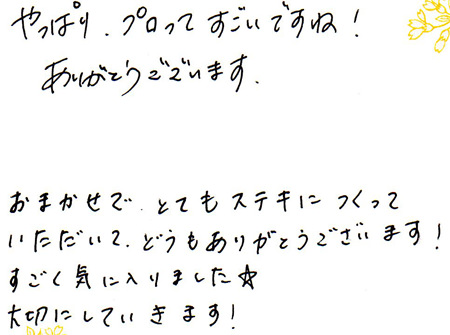 やっぱり、プロってすごいですね!
ありがとうございます.
おまかせで、とてもステキにつくって
いただいて、どうもありがとうございます!
すごく気に入りました☆
大切にしていきます!